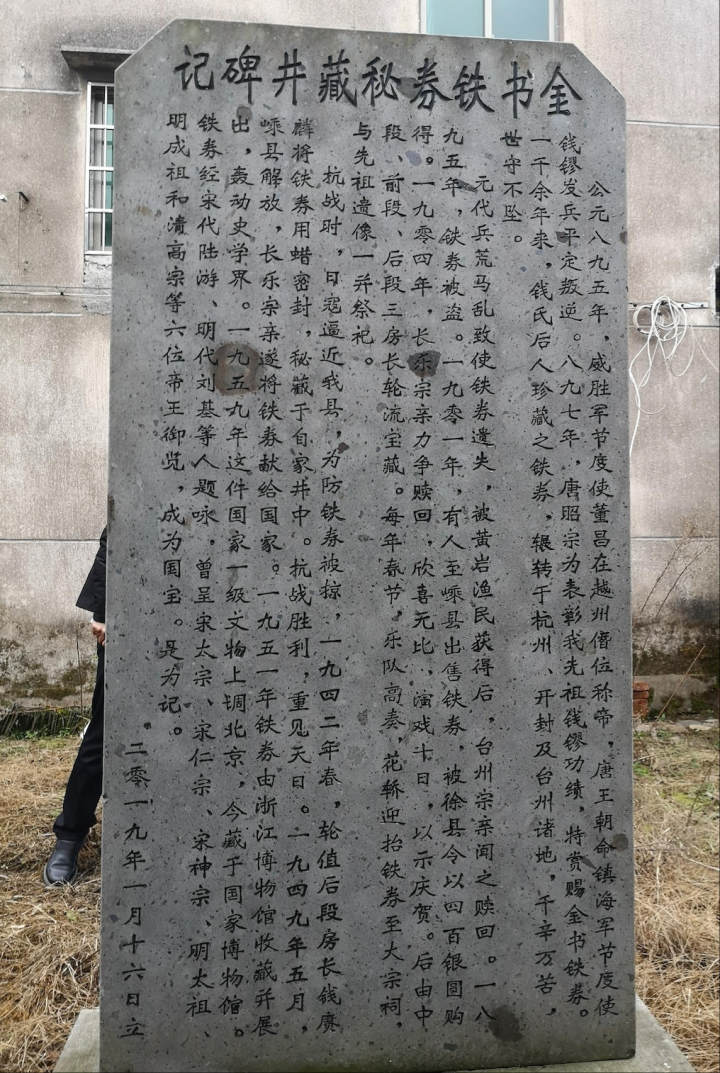 金书铁券秘藏井碑记
公元八九五年，威胜军节度使董昌在越州僭位称帝，唐王朝命镇海军节度使
钱镠发兵平定叛逆。八九七年，唐昭宗为表彰我先祖钱镠功绩，特赏赐金书铁券。
一千余年来，钱氏后人珍藏之铁券，辗转于杭州、开封及台州诸地，千辛万苦，
世守不坠。
元代兵荒马乱致使铁券遗失，被黄岩渔民获得后，台州宗亲闻之赎回。一八
九五年，铁券被盗。一九零一年，有人至嵊县出售铁券，被徐县令以四百银圆购
得。一九零四年，长乐宗亲力争赎回，欣喜无比，演戏十日，以示庆贺。后由中
段、前段、后段三房长轮流宝藏。每年春节，乐队高奏，花轿迎抬铁券至大宗祠，
与先祖遗像一并祭祀。
抗战时，日寇逼近我县，为防铁券被掠，一九四二年春，轮值后段房长钱赓
麟将铁券用蜡密封，秘藏于自家井中。抗战胜利，重见天日。一九四九年五月，
嵊县解放，长乐宗亲遂将铁券献给国家。一九五一年铁券由浙江博物馆收藏并展
出，轰动史学界。一九五九年这件国家一级文物上调北京，今藏于国家博物馆。
铁券经宋代陆游、明代刘基等人题咏，曾呈宋太宗、宋仁宗、宋神宗、明太祖、
明成祖和清高宗等六位帝王御览，成为国宝。是为记。
二零一九年一月十六日立